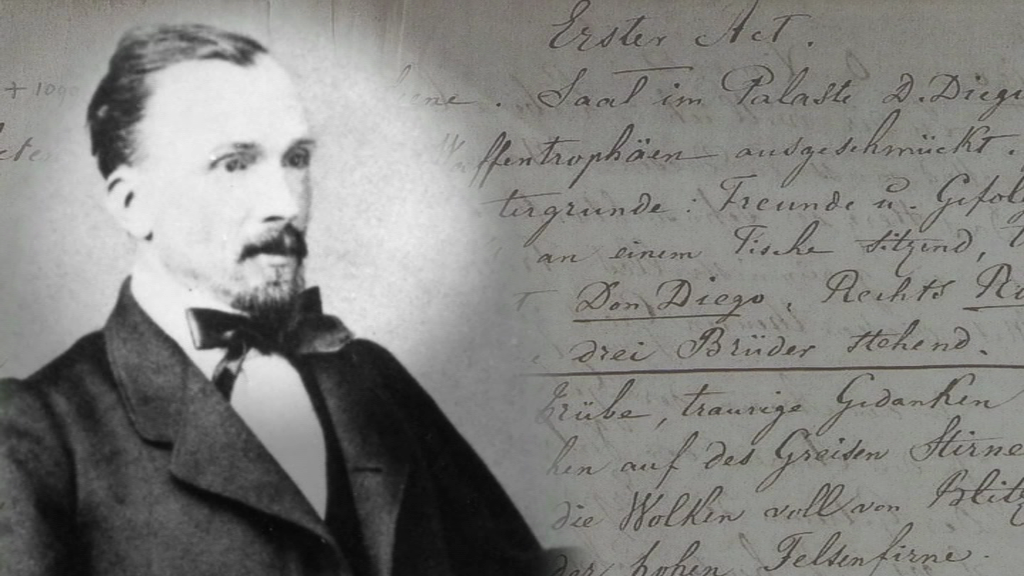 Erster Act.
+ 1090
ene. Saal im Palaste D. Dieg
ffentrophäen ausgeschmückt.
tergrunde: Freunde u. Gefolg
an einem Tische sitzend,
Don Diego, Rechts Ro
drei Brüder stehend.
Trübe, traurige Gedanken
hen auf des Greisen Stirne
die Wolken voll von Blitz
der hohen Felsenfirne.